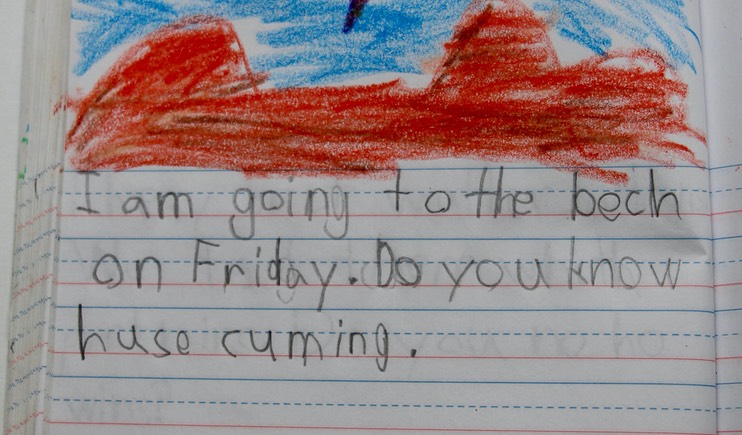 I am going to the bech
on Friday. Do you know
huse cuming.